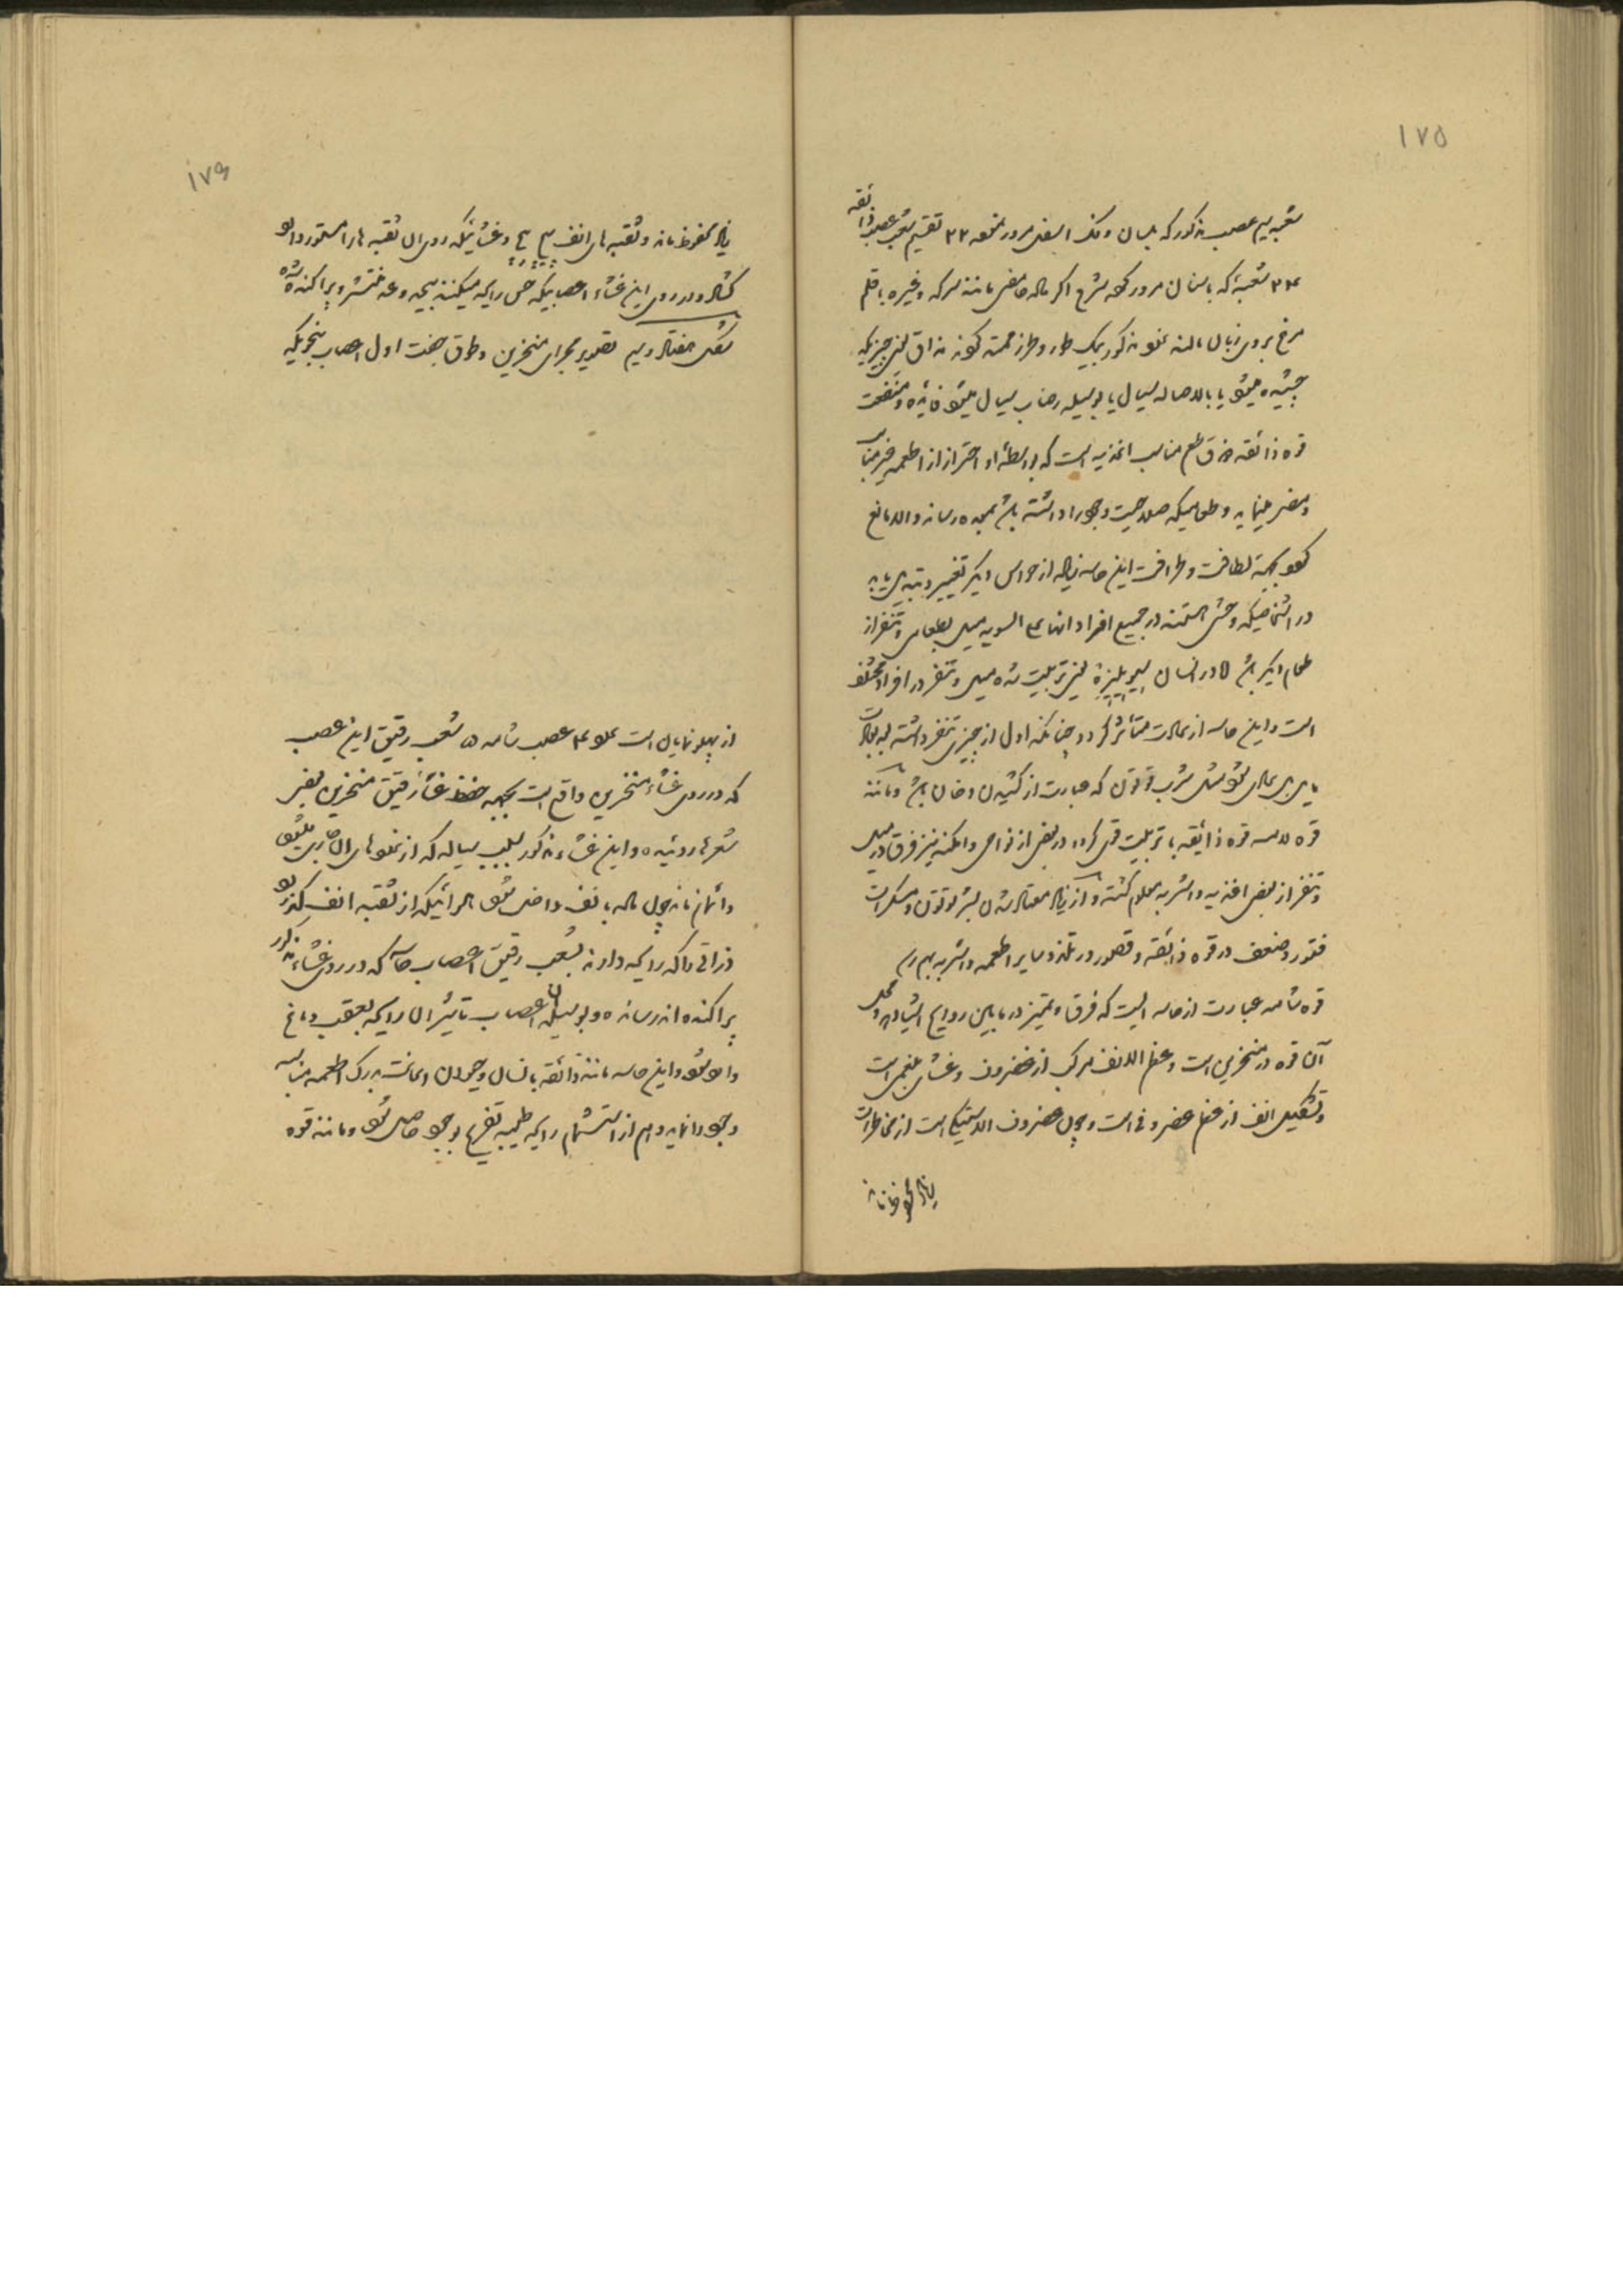 ۱۷۵
شعبه سیم عصب مذکور که بلسان و فک اسفل مرور نموده ۲۲ تقسیم شعب عصب ذائقه
۲۳ شعبه که باسنان مرور کرده شرح اگر ماده حامضی مانند سرکه و غیره با قلم
مرغ بروی زبان بمالند عضو مذکور بیک طور و طرز جمع کوند مذاق یعنی چیزیکه
چشیده میشود یا بالاصاله سیال یا بوسیله رضاب سیال میشود فایده و منفعت
قوه ذائقه فرق طعم مناسب اغذیه است که بواسطه او احتراز از اطعمه غیر مناسب
و مضر مینماید و طعامیکه صلاحیت وجود را داشته باشد بمعده رساند و الا مانع
کردد بجهة لطافت و ظرافت این حاسه زیاده از حواس دیگر تغییر و تبدیل یابد
در اشخاصیکه وحشی هستند در جمیع افراد آنها علی السویه میل بطعامی و تنفر از
طعام دیگر باشد اما در انسان سیویلیزه یعنی تربیت شده میل و تنفر در افراد مختلف
است و این حاسه از عادت متأثر گردد چنانکه اول از چیزی تنفر داشته بعد بعادت
مایل بر آن شود مثل شرب توتون که عبارت از کشیدن دخان باشد و مانند
قوه لامسه قوه ذائقه با تربیت قوی گردد در بعض از نواحی و امکنه نیز فرق در میل
و تنفر از بعض اغذیه و اشربه معلوم گشته و از زیاد معتاد شدن بشرب توتون و مسکرات
فتور و ضعف در قوه ذائقه و قصور در تلذذ سایر اطعمه و اشربه بهم رسد
قوه شامه عبارت از حاسه ایست که فرق و تمیز در مابین روایح اشیاء دهد و محل
آن قوه در منخرین است و عظم الانف مرکب از غضروف و غشای بلغمی است
و تشکیل انف از عظم غضروفی است و چون غضروف الاستیکی است از مخاطرات
زیاد محفوظ ماند
۱۷۶
زیاد محفوظ ماند و ثقبه های انف و غشائیکه روی آن ثقبه ها را مستور دارد
گشاد و در روی این غشاء اعصابیکه حس رایحه میکنند بیحد و عد منتشر و پراکنده شده
شکل هفتاد و سیم تصویر مجرای منخرین و طرق جفت اول اعصاب بنحویکه
از پهلو نمایان است علامت عصب شامه ۵ شعب رقیق این عصب
که در روی غشاء منخرین واقع است بجهة حفظ غشاء رقیق منخرین بعض
شعرها روئیده و این غشاء مذکور بسبب سیاله که از غدوهای آن جاری میشود
دائماً نم ماند چون ماده بانف داخل شود هوائیکه از ثقبه انف گذرد
ذراتی را که رایحه دارند بشعب رقیق اعصاب حاسه که در روی غشاء مذکور
پراکنده اند رسانده و بوسیله آن اعصاب تأثیر آن رایحه بعقب دماغ
وارد شود و این حاسه مانند ذائقه بانسان و حیوان اعانت بدرک اطعمه مناسبه
وجود نماید و هم از استشمام رایحه طیبه تفریح بوجود حاصل شود و مانند قوه